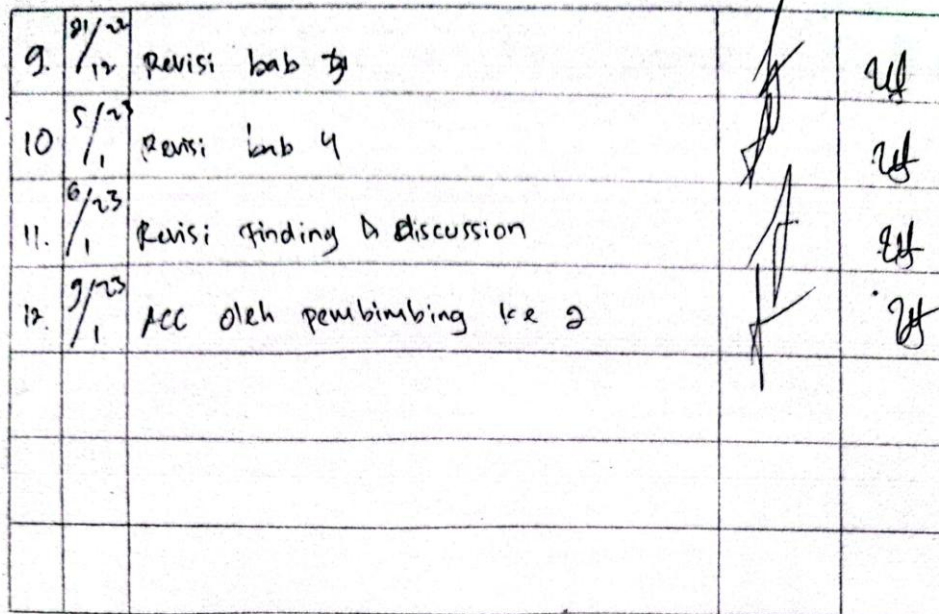 9. /12 Revisi bab
10 5/23/1 Revisi bab 4
11. 6/23/1 Revisi finding & discussion
12. 9/23/1 ACC oleh pembimbing ke 2